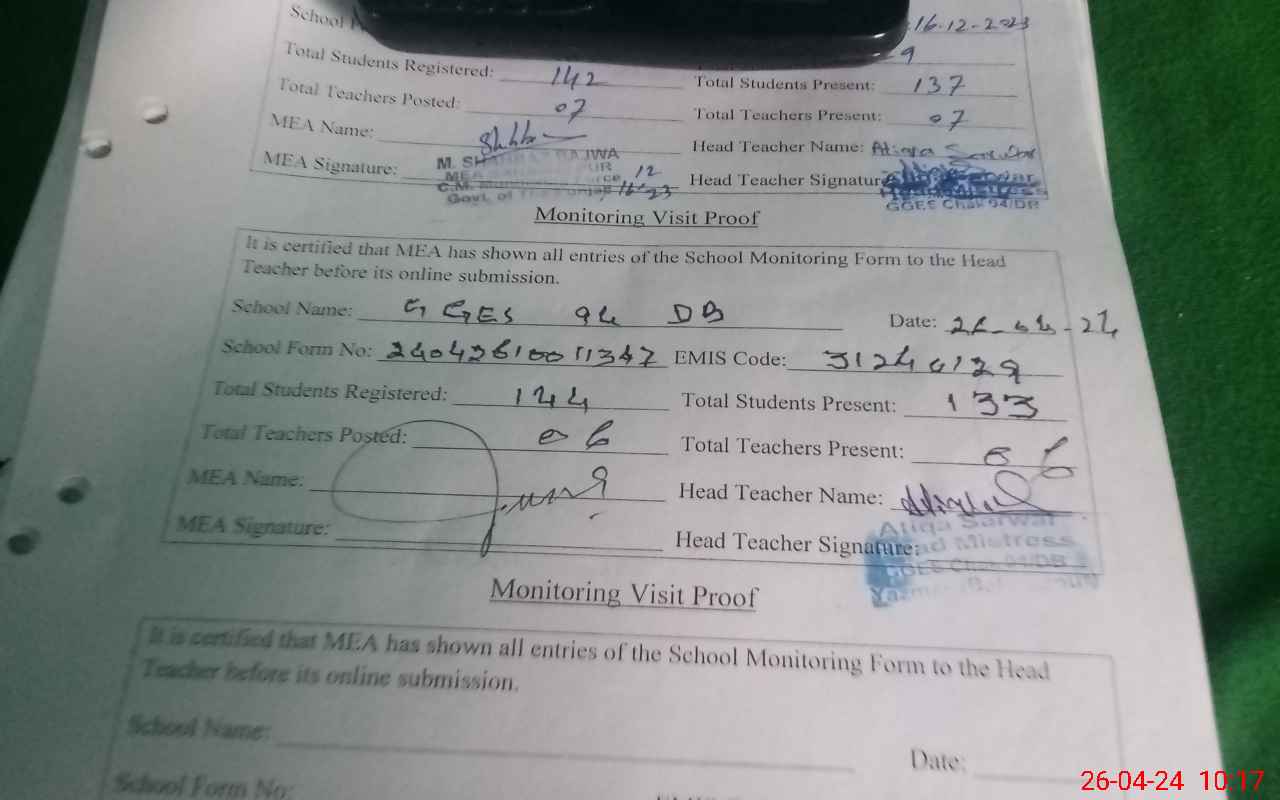 School 16-12-2023
9
Total Students Registered: 142 Total Students Present: 137
Total Teachers Posted: 07 Total Teachers Present: 07
MEA Name: Head Teacher Name: Atiqa Sarwar
MEA Signature: Head Teacher Signature
M. SH
12
16/23
C.M.
Govt. of The Punjab
GGES Chak 94/DB
Monitoring Visit Proof
It is certified that MEA has shown all entries of the School Monitoring Form to the Head
Teacher before its online submission.
School Name: GGES 94 DB Date: 26-04-24
School Form No: EMIS Code: 31244129
Total Students Registered: 144 Total Students Present: 133
Total Teachers Posted: 06 Total Teachers Present: 06
MEA Name: Head Teacher Name:
MEA Signature: Head Teacher Signature:
Atiqa Sarwar
Head Mistress
GGES Chak 94/DB
Monitoring Visit Proof
It is certified that MEA has shown all entries of the School Monitoring Form to the Head
Teacher before its online submission.
School Name: Date:
School Form No:
26-04-24 10:17